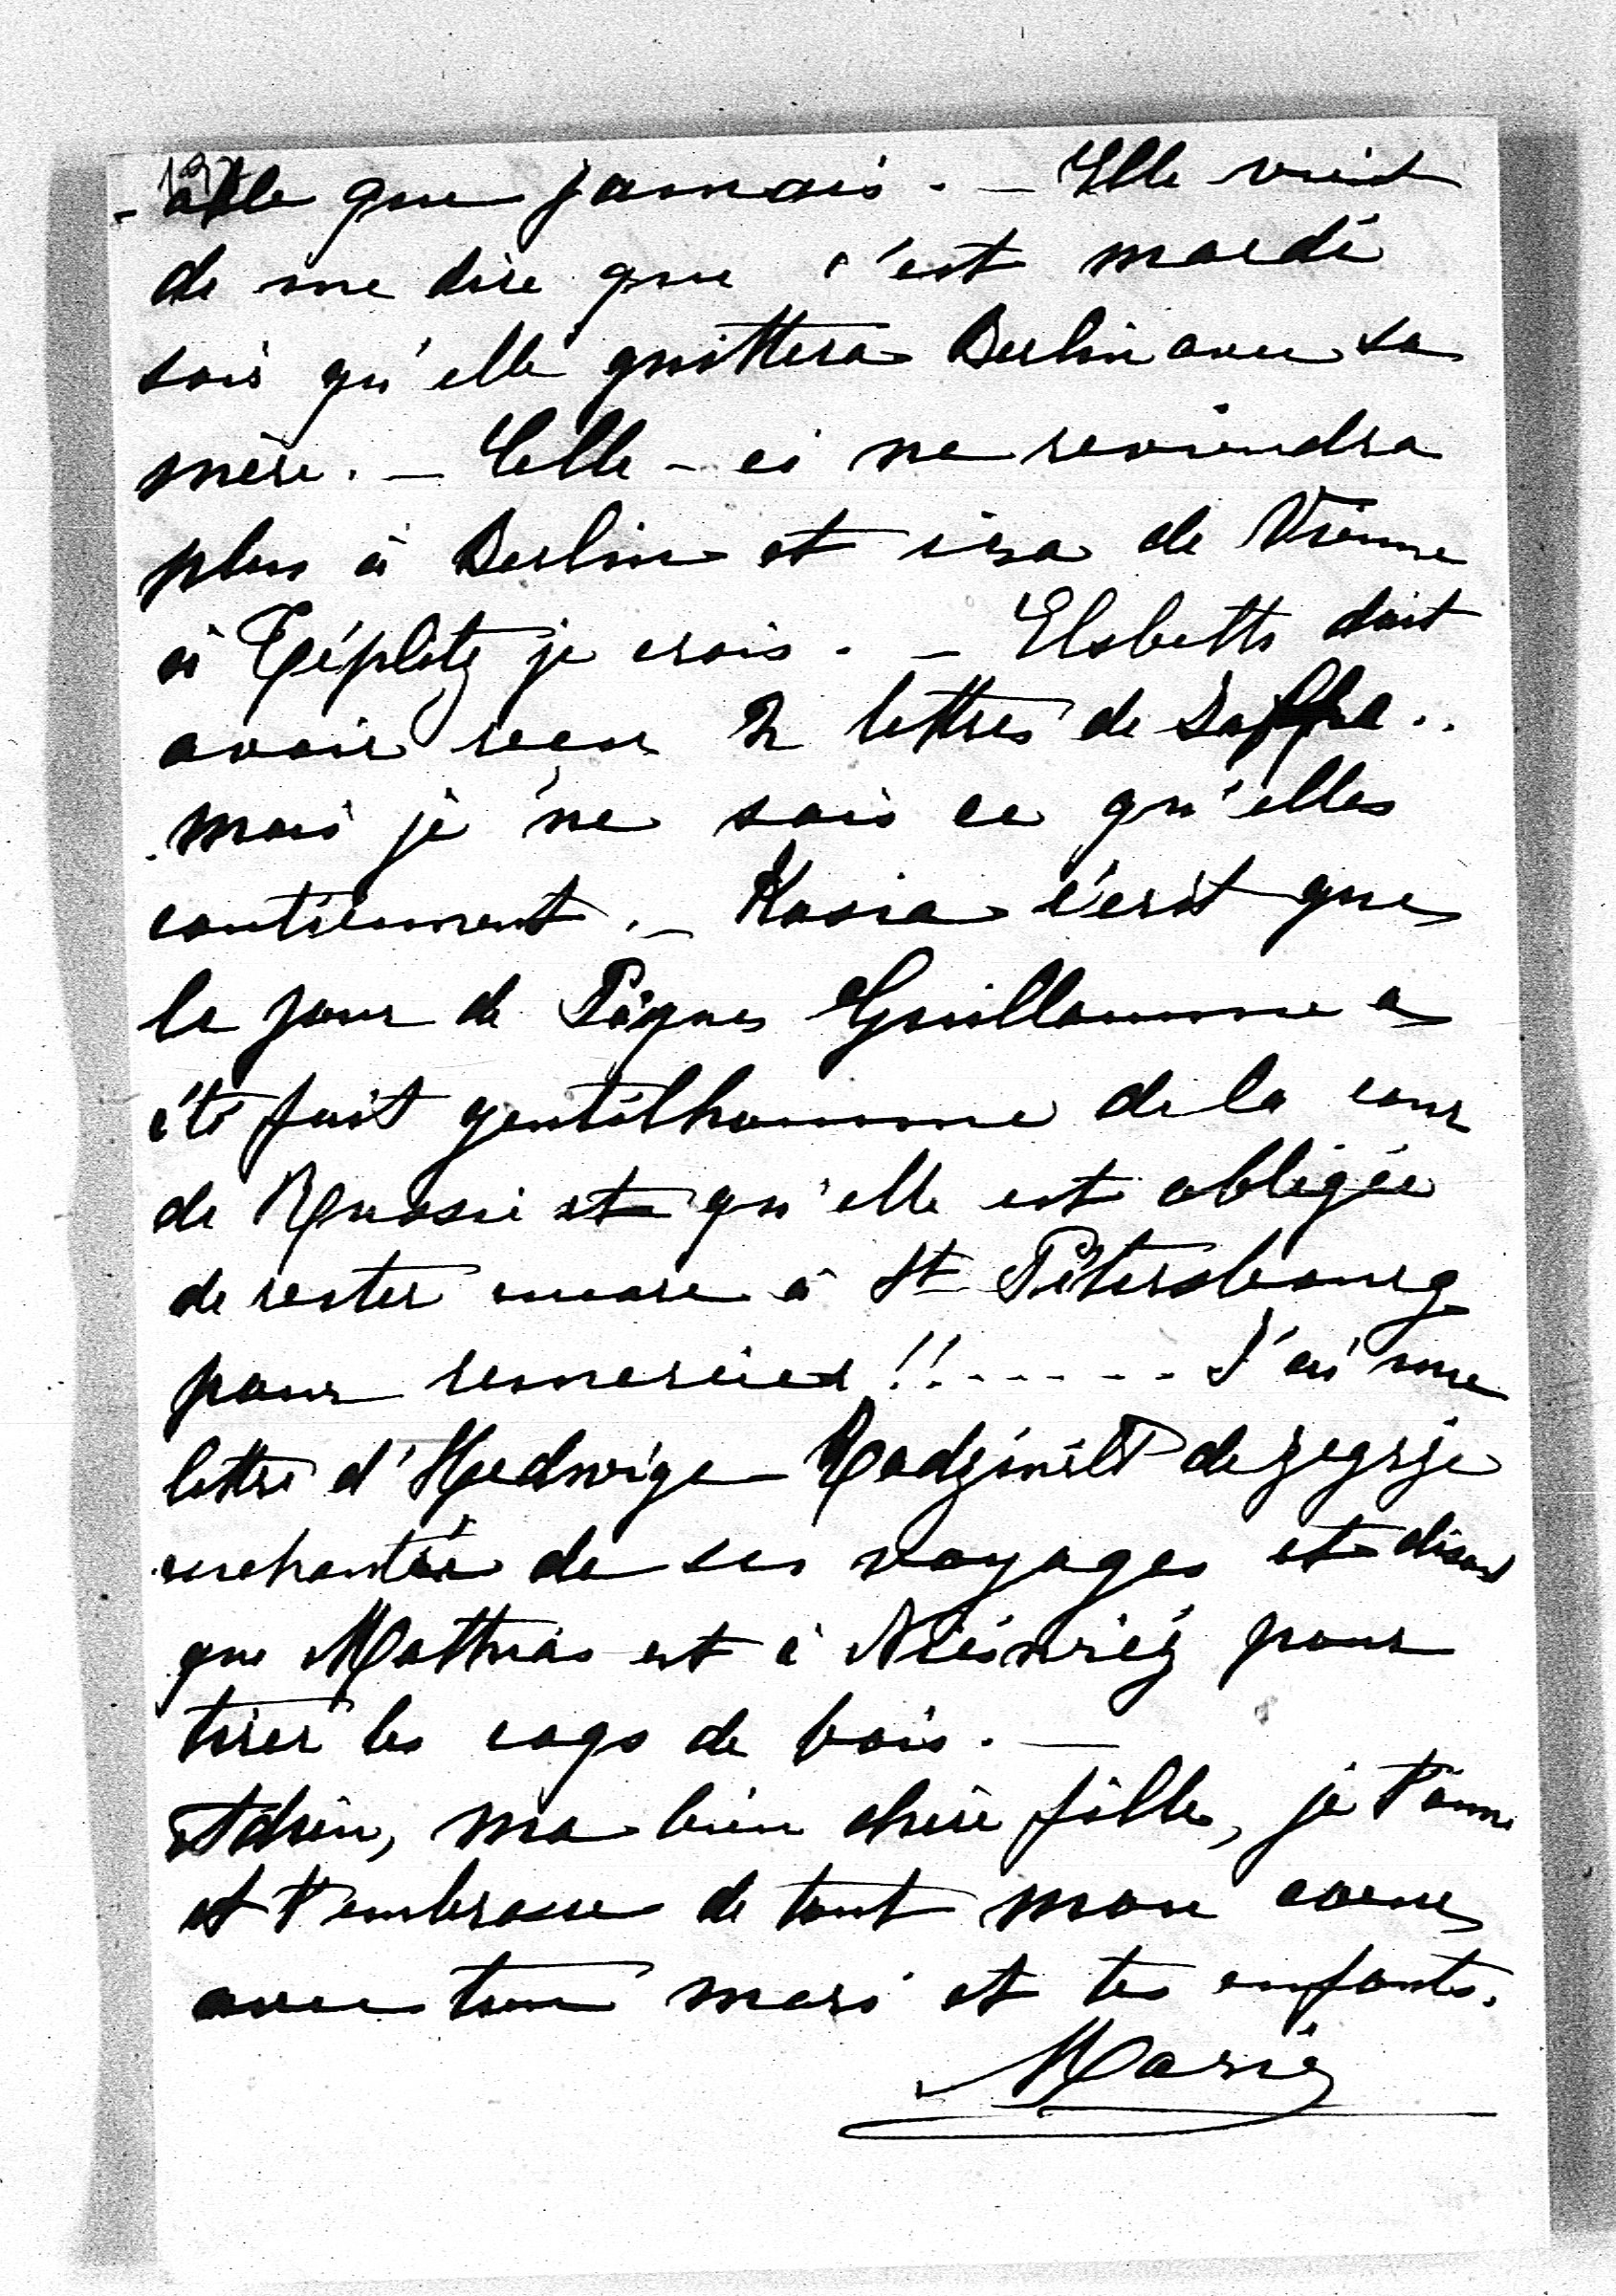 197
-able que jamais. — Elle vient
de me dire que c'est mardi
soir qu'elle quittera Berlin avec sa
mère. — Celle-ci ne reviendra
plus à Berlin et ira de Vienne
à Téplitz je crois. — Elsbeth doit
avoir reçu 2 lettres de Jaffa..
mais je ne sais ce qu'elles
contiennent. — Kasia écrit que
le jour de Pâques Guillaume a
été fait gentilhomme de la cour
de Russie et qu'elle est obligée
de rester encore à St Pétersbourg
pour remercier !! - - - - - - J'ai une
lettre d'Hedwige Radziwiłł de Zegrze
enchantée de ses voyages et disant
que Mathias est à Nieśwież pour
tirer les coqs de bois. —
Adieu, ma bien chère fille, je t'aime
et t'embrasse de tout mon coeur
avec ton mari et tes enfants.
Marie